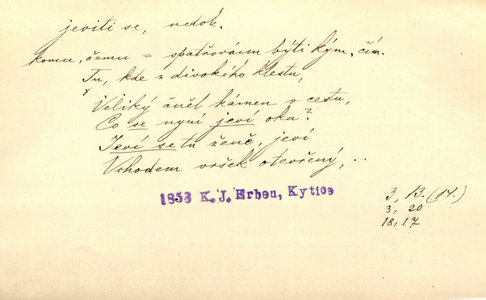 jeviti se, nedok.
komu, čemu = spatřovánu býti kým, čím.
Tu, kde z divokého klestu,
Veliký čněl kámen v cestu,
Co se nyní jeví oku?
Jeví se tu ženě, jeví
Vchodem vršek otevřený, ..
1853 K. J. Erben, Kytice
3, 13. (14.)
3, 20
18, 17